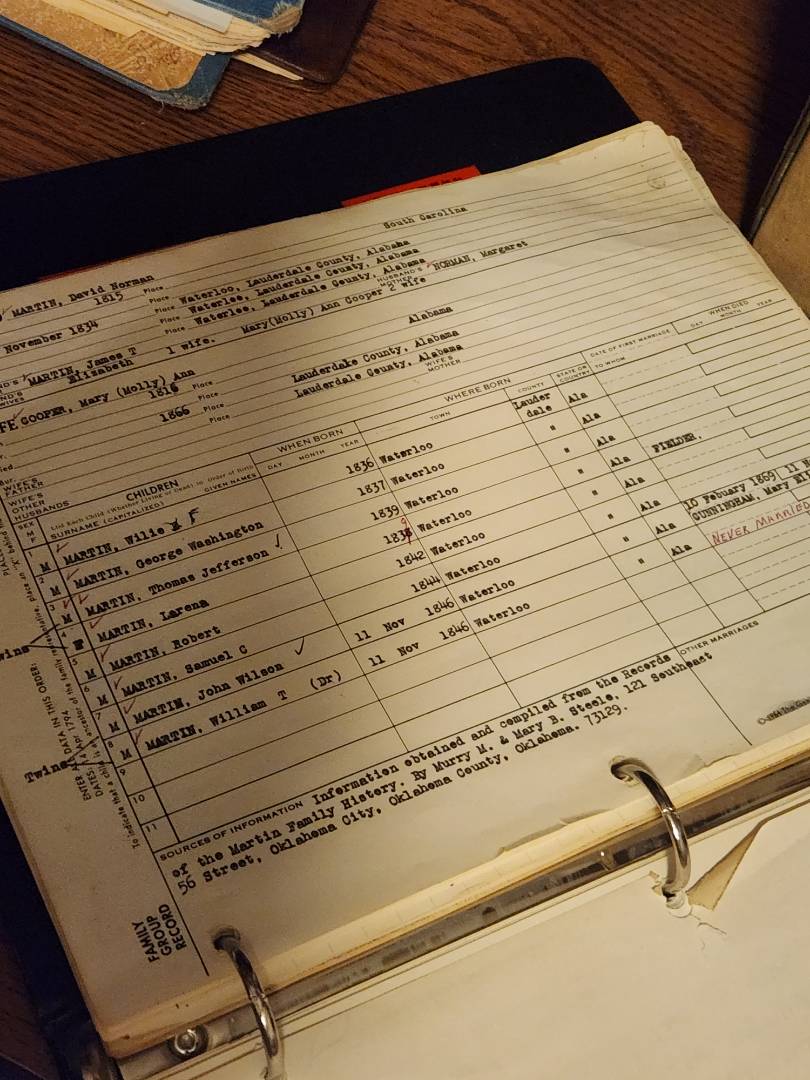 South Carolina
MARTIN, David Norman
1815 Place Waterloo, Lauderdale County, Alabama
Place Waterloo, Lauderdale County, Alabama
November 1834 Place Waterloo, Lauderdale County, Alabama
MARTIN, James T HUSBAND'S MOTHER NORMAN, Margaret
Elizabeth 1 wife. Mary(Molly) Ann Cooper 2 wife
COOPER, Mary (Molly) Ann
1816 Place Alabama
Place Lauderdale County, Alabama
1866 Place Lauderdale County, Alabama
WIFE'S FATHER WIFE'S MOTHER
WIFE'S OTHER HUSBANDS
SEX M F CHILDREN WHEN BORN WHERE BORN DATE OF FIRST MARRIAGE WHEN DIED
List Each Child (Whether Living or Dead) in Order of Birth
SURNAME (CAPITALIZED) GIVEN NAMES DAY MONTH YEAR TOWN COUNTY STATE OR COUNTRY TO WHOM DAY MONTH YEAR
1 M MARTIN, Wilie F 1836 Waterloo Lauder dale Ala
2 M MARTIN, George Washington 1837 Waterloo " Ala
3 M MARTIN, Thomas Jefferson 1839 Waterloo " Ala
4 F MARTIN, Larena 1839 Waterloo " Ala FIELDER,
5 M MARTIN, Robert 1842 Waterloo "
6 M MARTIN, Samuel C 1844 Waterloo " Ala
7 M MARTIN, John Wilson 11 Nov 1846 Waterloo " Ala 10 Febuary 1869 11
CUNNINGHAM, Mary
8 M MARTIN, William T (Dr) 11 Nov 1846 Waterloo " Ala NEVER MARRIED
9
10
11
Twins
SOURCES OF INFORMATION Information obtained and compiled from the Records
of the Martin Family History. By Murry M. & Mary B. Steele, 121 Southeast
56 Street, Oklahoma City, Oklahoma County, Oklahoma. 73129.
OTHER MARRIAGES
FAMILY
GROUP
RECORD
ENTER ALL DATA IN THIS ORDER: